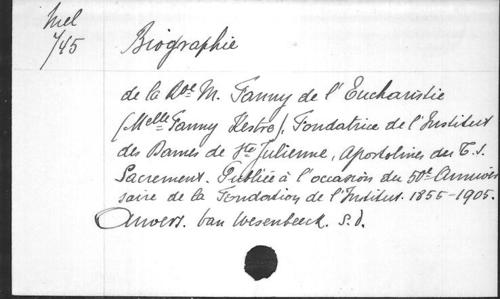 Mel
745
Biographie
de la Rde M. Fanny de l'Eucharistie
(Melle Fanny Kestre), Fondatrice de l'Institut
des Dames de Ste Julienne, Apostolines du T. S.
Sacrement. Publiée à l'occasion du 50e Anniver
saire de la Fondation de l'Institut. 1855-1905.
Anvers. Van Wesenbeeck. S.d.